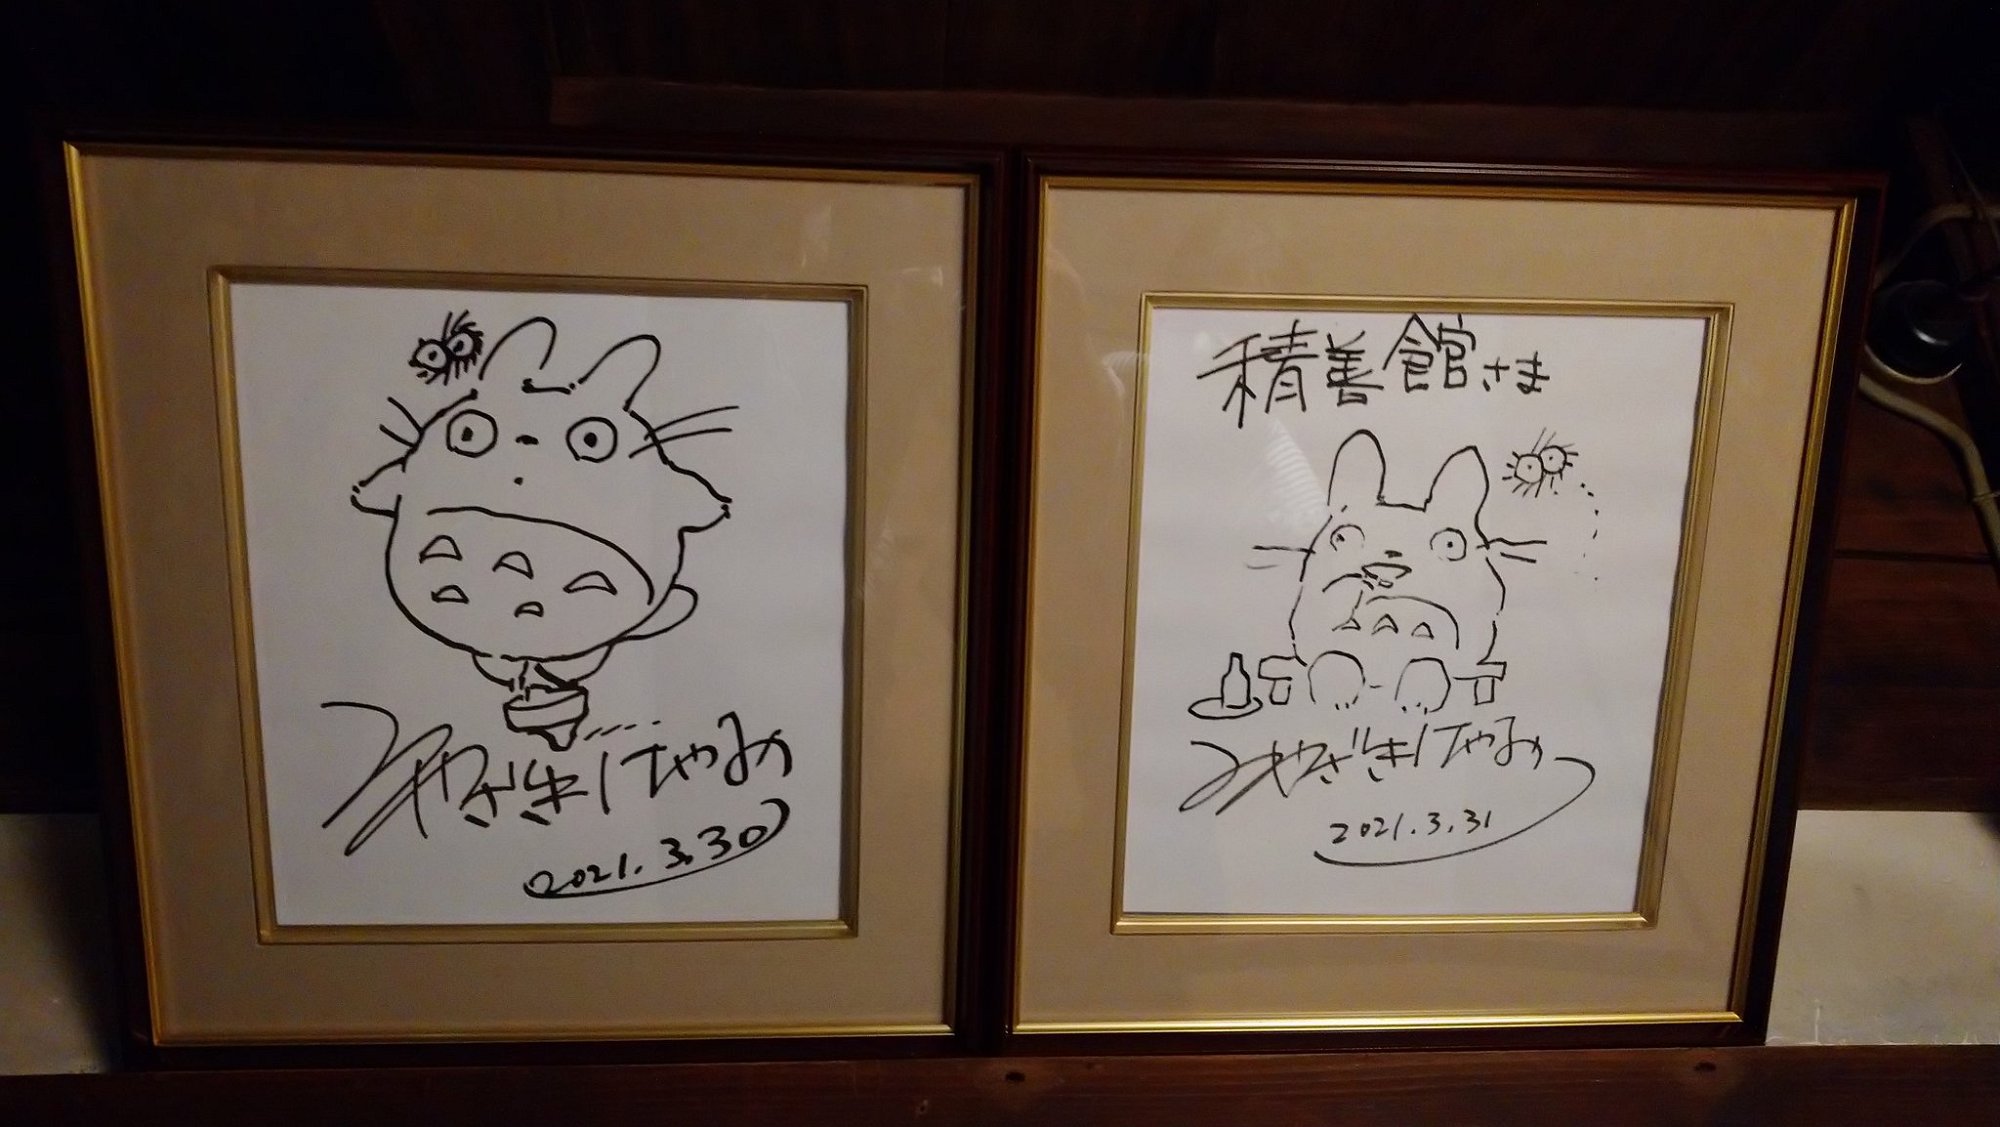 みやざきはやお
2021.3.30
積善館さま
みやざきはやお
2021.3.31